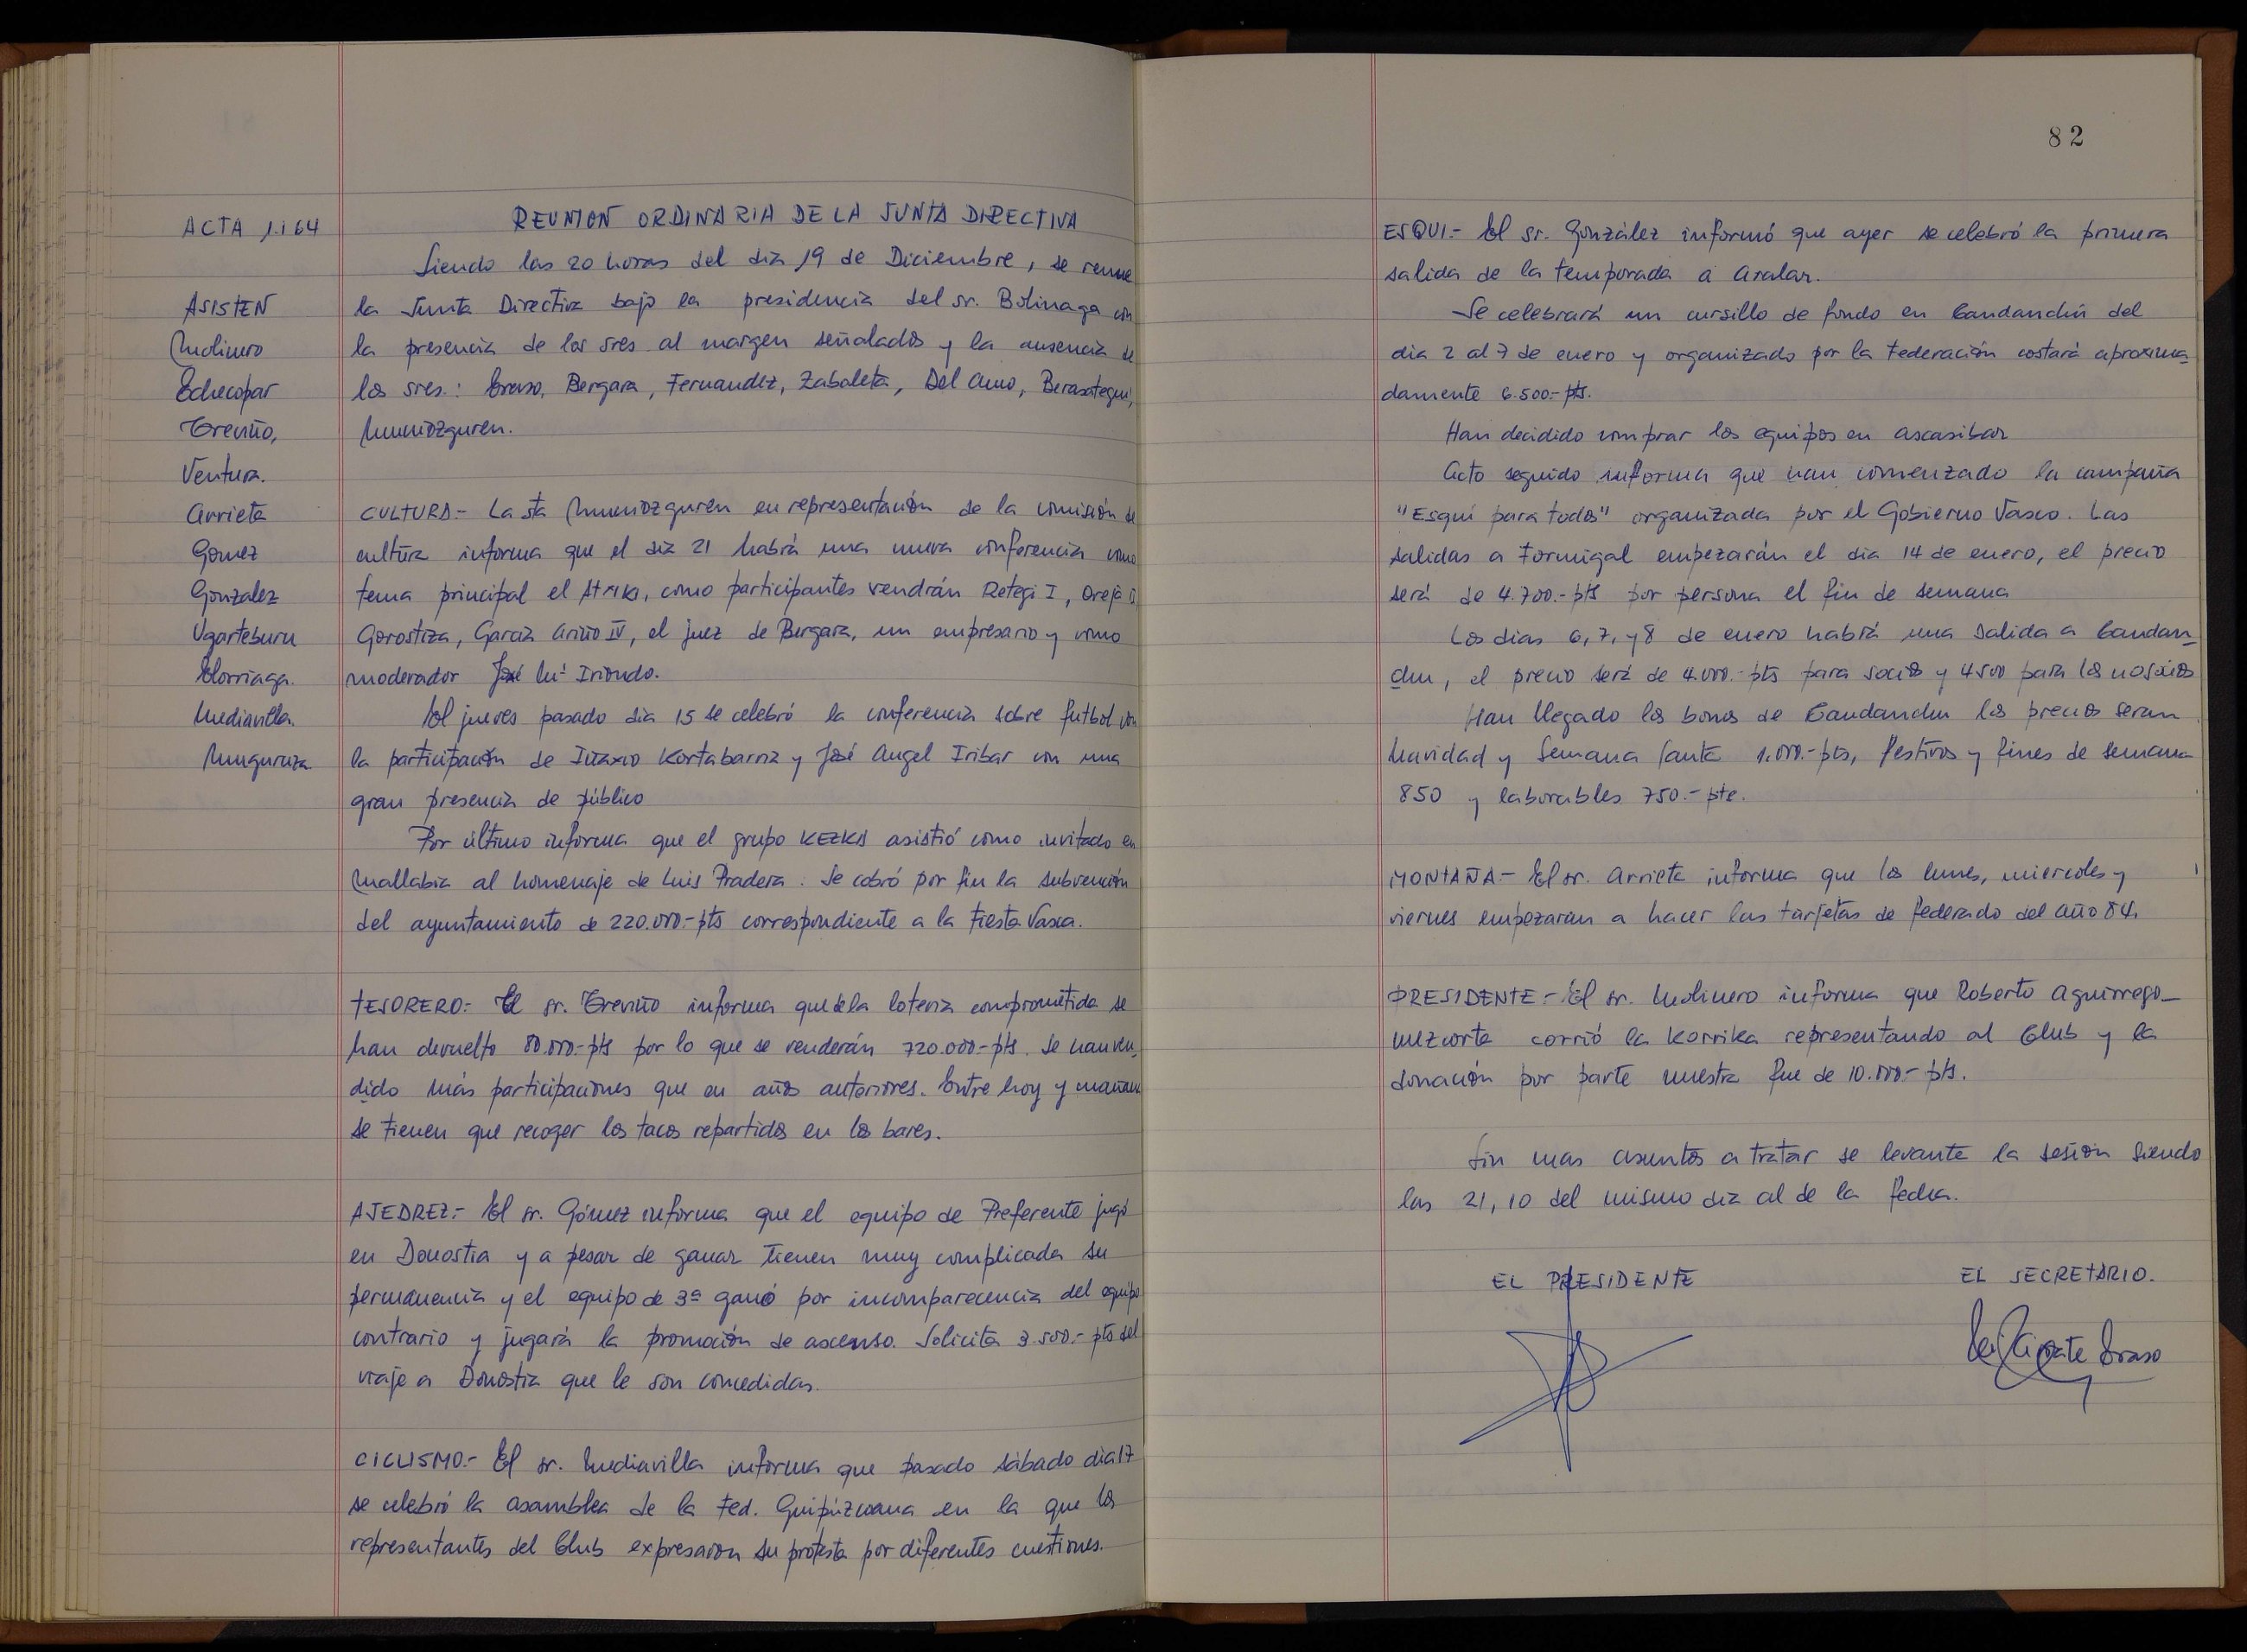 ACTA 1.164
ASISTEN
Molinero
Echecopar
Treviño,
Ventura.
Arrieta
Gomez
Gonzalez
Ugarteburu
Elorriaga.
Mediavilla.
Munguruza
REUNION ORDINARIA DE LA JUNTA DIRECTIVA
Siendo las 20 horas del dia 19 de Diciembre, se reune
la Junta Directiva bajo la presidencia del sr. Bolinaga con
la presencia de los sres al margen señalados y la ausencia de
los sres.: Eraso, Bergara, Fernandez, Zabaleta, Del Amo, Berasategui,
Muniozguren.
CULTURA.- La sta Muniozguren en representación de la comisión de
cultura informa que el dia 21 habrá una nueva conferencia como
tema principal el como participantes vendrán Retegi I, Oreja
Gorostiza, Garcia Ariño IV, el juez de Bergara, un empresario y como
moderador José Mª Iriondo.
El jueves pasado dia 15 se celebró la conferencia sobre futbol con
la participación de Iñaxio Kortabarria y José Angel Iribar con una
gran presencia de público
Por último informa que el grupo KEZKA asistió como invitado en
Mallabia al homenaje de Luis Pradera. Se cobró por fin la subvención
del ayuntamiento de 220.000.-pts correspondiente a la Fiesta Vasca.
TESORERO.- El sr. Treviño informa que de la loteria comprometida se
han devuelto 80.000.-pts por lo que se venderán 720.000.-pts. Se han ven_
dido más participaciones que en años anteriores. Entre hoy y mañana
se tienen que recoger los tacos repartidos en los bares.
AJEDREZ.- El sr. Gómez informa que el equipo de Preferente jugó
en Donostia y a pesar de ganar tienen muy complicada su
permanencia y el equipo de 3ª ganó por incomparecencia del equipo
contrario y jugará la promoción de ascenso. Solicita 3.500.- pts del
viaje a Donostia que le son concedidas.
CICLISMO.- El sr. Mediavilla informa que pasado sábado dia 17
se celebró la asamblea de la Fed. Guipúzcoana en la que los
representantes del Club expresaron su protesta por diferentes cuestiones.
82
ESQUI.- El sr. González informó que ayer se celebró la primera
salida de la temporada a Aralar.
Se celebrará un cursillo de fondo en Candanchú del
dia 2 al 7 de enero y organizado por la Federación costará aproxima_
damente 6.500.- pts.
Han decidido comprar los equipos en Ascasibar
Acto seguido informa que han comenzado la campaña
"Esquí para todos" organizada por el Gobierno Vasco. Las
salidas a Formigal empezarán el dia 14 de enero, el precio
será de 4.700.- pts por persona el fin de semana
Los dias 6, 7, y 8 de enero habrá una salida a Candan_
chu, el precio será de 4.000.- pts para socios y 4500 para los no socios
Han llegado los bonos de Candanchu los precios seran
Navidad y Semana Santa 1.000.- pts, festivos y fines de semana
850 y laborables 750.- pts.
MONTAÑA.- El sr. Arrieta informa que los lunes, miercoles y
viernes empezaran a hacer las tarjetas de federado del año 84.
PRESIDENTE.- El sr. Molinero informa que Roberto Aguirrego_
mezcorta corrió la Korrika representando al Club y la
donación por parte nuestra fue de 10.000.- pts.
Sin mas asuntos a tratar se levanta la sesión siendo
las 21,10 del mismo dia al de la fecha.
EL PRESIDENTE
EL SECRETARIO.
Eraso